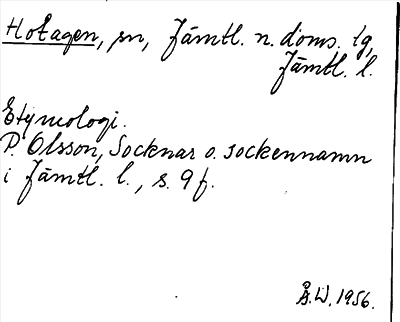 Hotagen, sn, Jämtl. n. doms. lg,
Jämtl. l.
Etymologi.
P. Olsson, Socknar o. sockennamn
i Jämtl. l., s. 9 f.
Å.W. 1956.